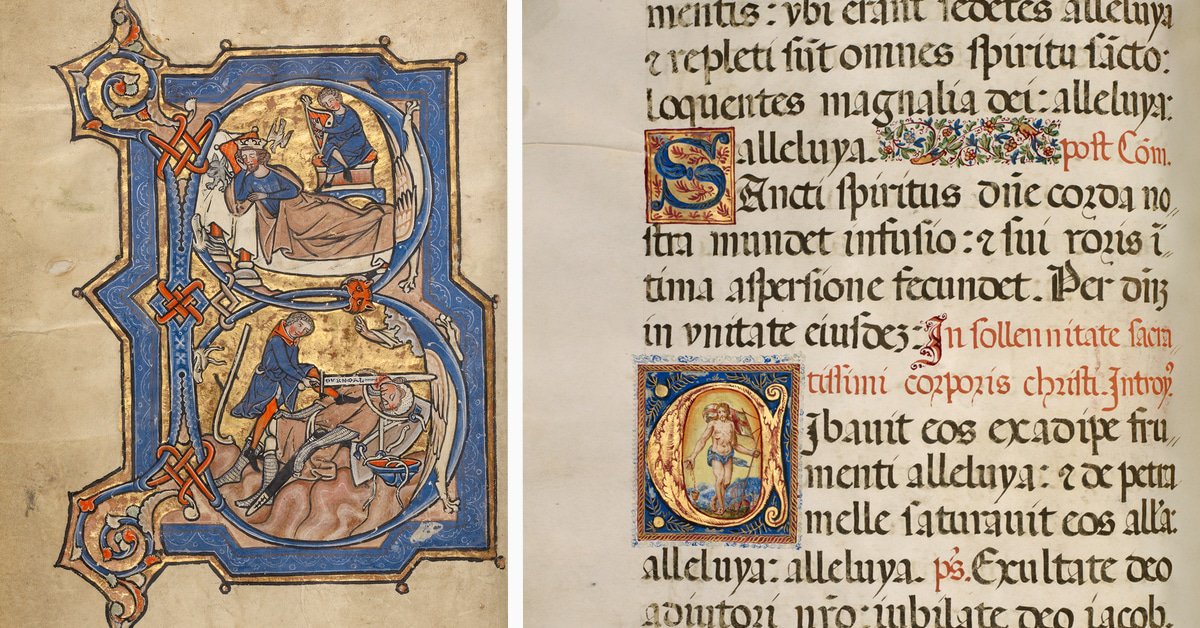 DVRNDAL
mentis: vbi erant sedētes alleluya
⁊ repleti sūt omnes spiritu sācto:
loquentes magnalia dei: alleluya:
alleluya. post Cōm.
SAncti spiritus dñe corda no„
stra mundet infusio: ⁊ sui roris ī„
tima aspersione fecundet. Per dñ3
in vnitate eiusdez: In sollennitate sacra„
tissimi corporis christi. Introy̾.
CIbauit eos exadipe fru„
menti alleluya: ⁊ de petra
melle saturauit eos all'a:
alleluya: alleluya. ps̄. Exultate deo
adiutori nr̄o: iubilate deo iacob.